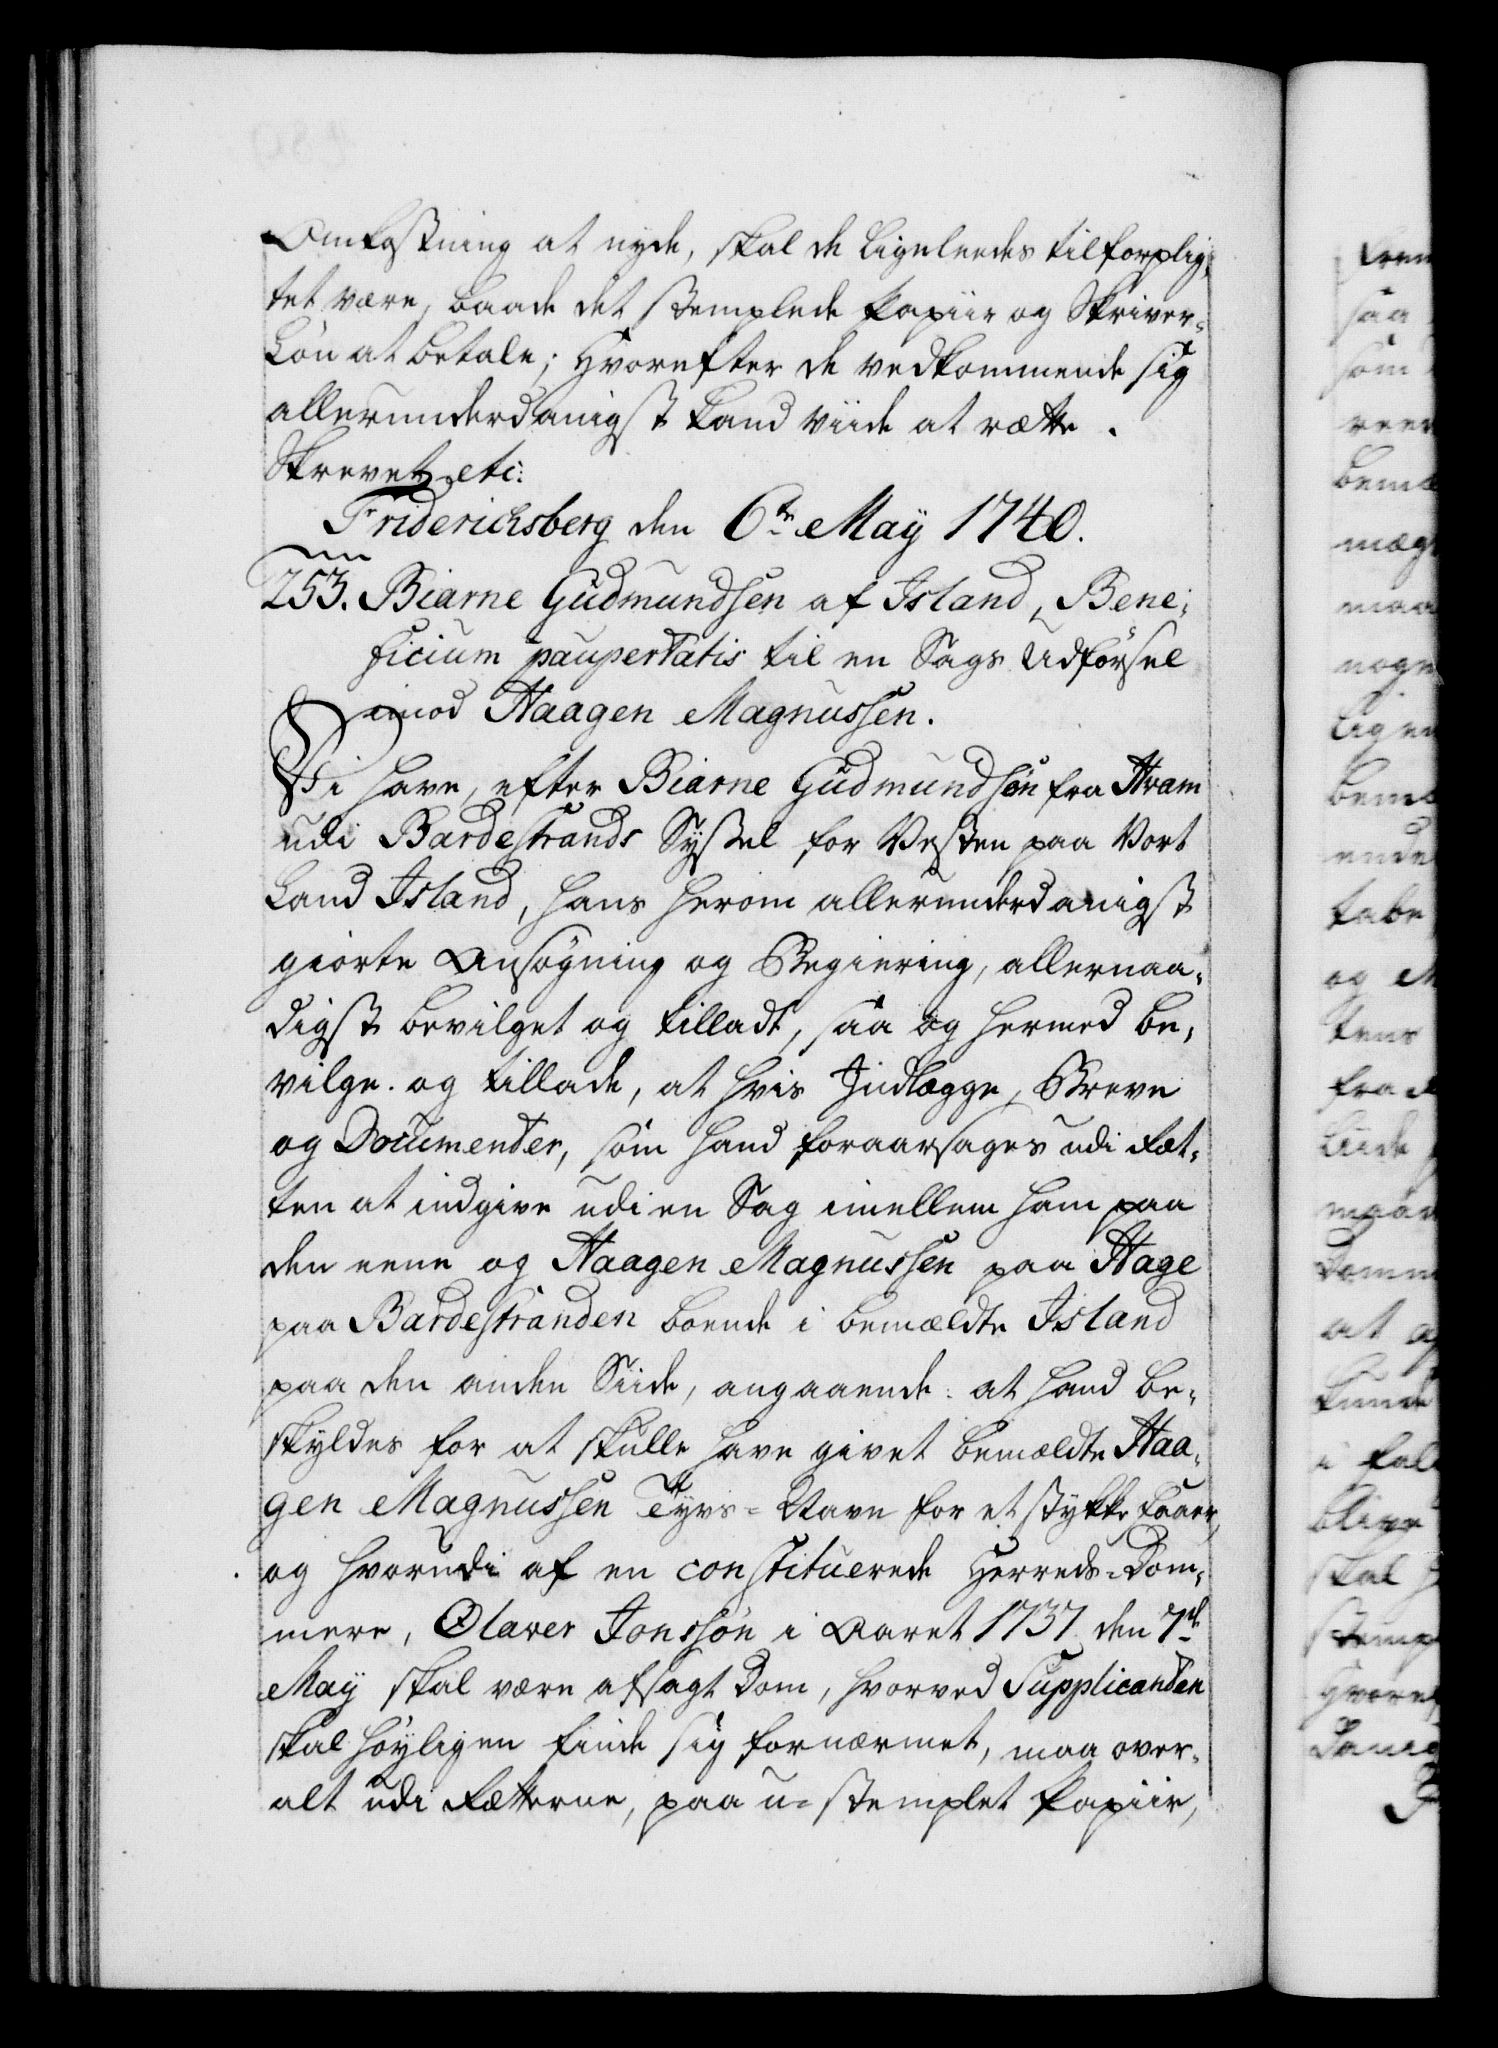 Omkostning at nyde, skal de ligeleedes tilforplig-
tet være, baade det stemplede Papiir og Skriver-
Løn at betale; Hvorefter de vedkommende sig
allerunderdanigst kand viide at rætte.
Skrevet etc:
Friderichsberg den 6te May 1740.
253. Biarne Gudmundsen af Island, Bene-
ficium paupertatis til en Sags Udførsel
imod Haagen Magnussen.
Vi have, efter Biarne Gudmundsøn fra Hvam
udi Bardestrands Syssel for Vesten paa Vort
Land Island, hans herom allerunderdanigst
giorte Ansøgning og Begiering, allernaa-
digst bevilget og tilladt, saa og hermed be-
vilge og tillade, at hvis Indlægge, Breve
og Documenter, som hand foraarsages udi Ræt-
ten at indgive udi en Sag imellem ham paa
den eene og Haagen Magnussen paa Hage
paa Bardestranden boende i bemældte Island
paa den anden Siide, angaaende: at hand be-
skyldes for at skulle have givet bemældte Haa-
gen Magnussen Tyvs-Navn for et stykke Faar,
og hvorudi af en constituerede Herreds-Dom-
mere, Olaver Jonssøn i Aaret 1737 den 7de
May skal være afsagt Dom, hvorved Supplicanten
skal høyligen finde sig fornærmet, maa over-
alt udi Rætterne, paa u-stemplet Papiir,